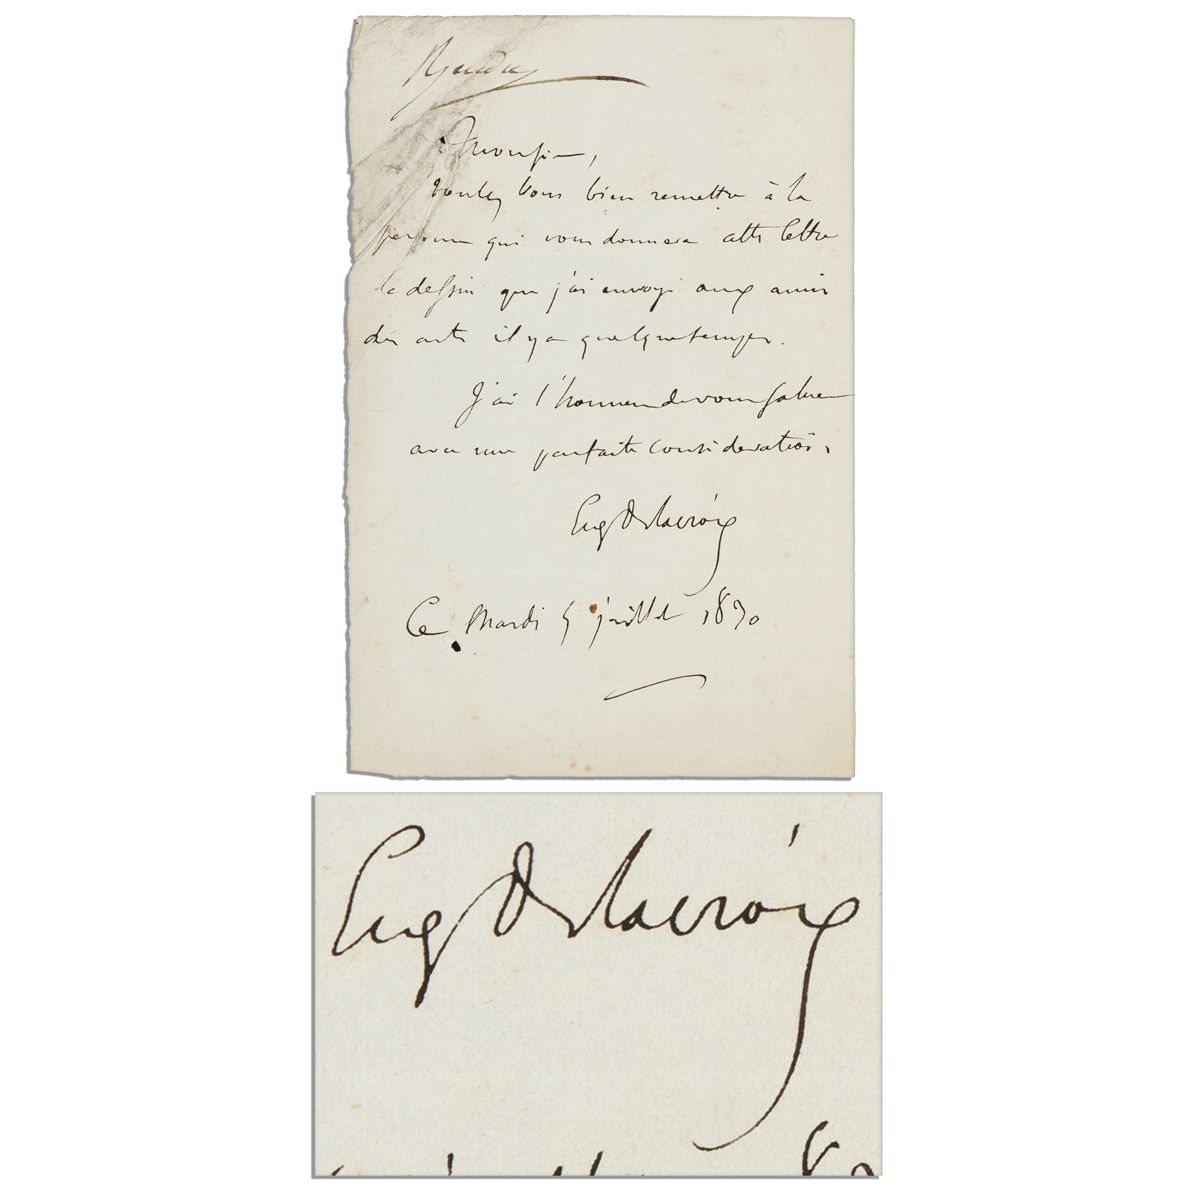 Monsieur,
voulez vous bien remettre à la
personne qui vous donnera cette lettre
le dessin que j'ai envoyé aux amis
des arts il y a quelque temps.
J'ai l'honneur de vous saluer
avec une parfaite consideration,
Eug Delacroix
Ce Mardi 5 juillet 1830
Eug Delacroix